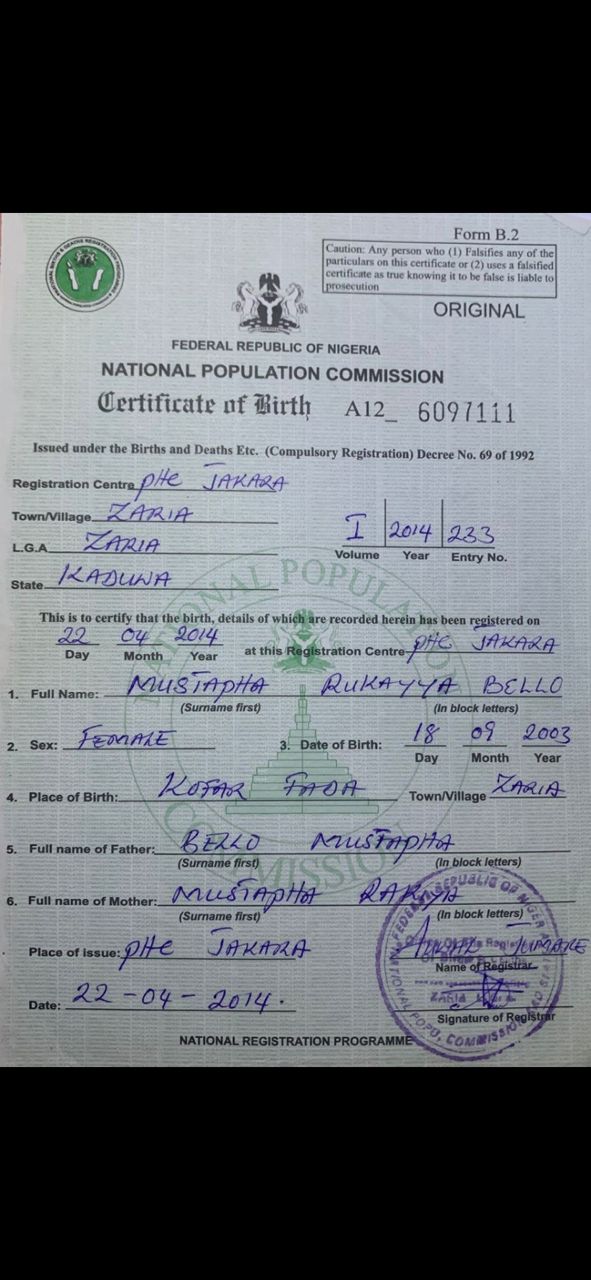 Form B.2
Caution: Any person who (1) Falsifies any of the
particulars on this certificate or (2) uses a falsified
certificate as true knowing it to be false is liable to
prosecution
ORIGINAL
FEDERAL REPUBLIC OF NIGERIA
NATIONAL POPULATION COMMISSION
Certificate of Birth A12_ 6097111
Issued under the Births and Deaths Etc. (Compulsory Registration) Decree No. 69 of 1992
Registration Centre PHC JAKARA
Town/Village ZARIA
L.G.A ZARIA
State KADUNA
I 2014 233
Volume Year Entry No.
This is to certify that the birth, details of which are recorded herein has been registered on
22 04 2014 at this Registration Centre PHC JAKARA
Day Month Year
1. Full Name: MUSTAPHA RUKAYYA BELLO
(Surname first) (In block letters)
2. Sex: FEMALE 3. Date of Birth: 18 09 2003
Day Month Year
4. Place of Birth: KOFAR FADA Town/Village ZARIA
5. Full name of Father: BELLO MUSTAPHA
(Surname first) (In block letters)
6. Full name of Mother: MUSTAPHA RAKIYA
(Surname first) (In block letters)
Place of issue: PHC JAKARA
Name of Registrar
Date: 22-04-2014.
Signature of Registrar
NATIONAL REGISTRATION PROGRAMME
NATIONAL POPULATION COMMISSION
FEDERAL REPUBLIC OF NIGERIA
ZARIA